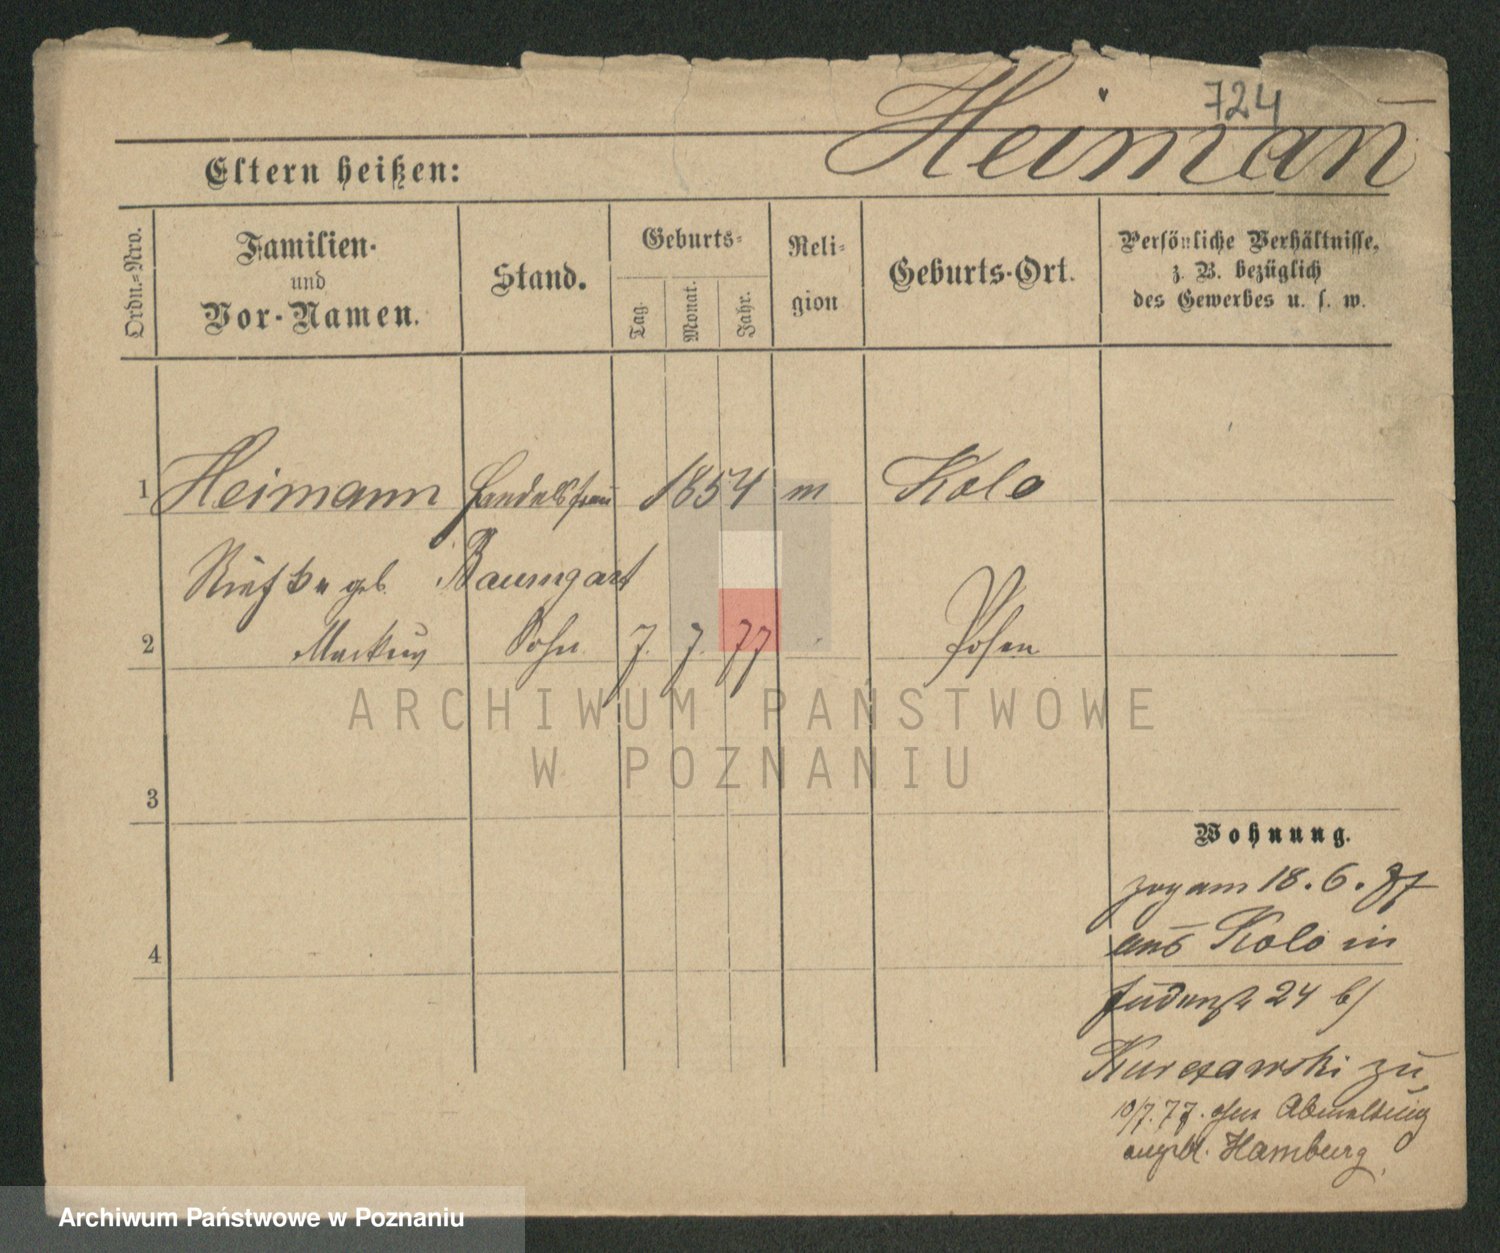 724
Heimañ
Eltern heißen:
Ordn.-Nro.
Familien-
und
Vor-Namen.
Stand.
Geburts-
Tag.
Monat.
Jahr.
Reli-
gion
Geburts-Ort.
Persönliche Verhältnisse,
z. B. bezüglich
des Gewerbes u. s. w.
1 Heimann Handelsfrau 1854 m Kolo
geb. Baumgart
2 Markus Sohn 7. 7. 77 Posen
3
4
Wohnung.
zog am 18. 6. 77
aus Kolo in
Judenstr 24 b/
Kurczawski zu
10/7. 77. ohne Abmeldung
angebl. Hamburg
ARCHIWUM PAŃSTWOWE
W POZNANIU
Archiwum Państwowe w Poznaniu